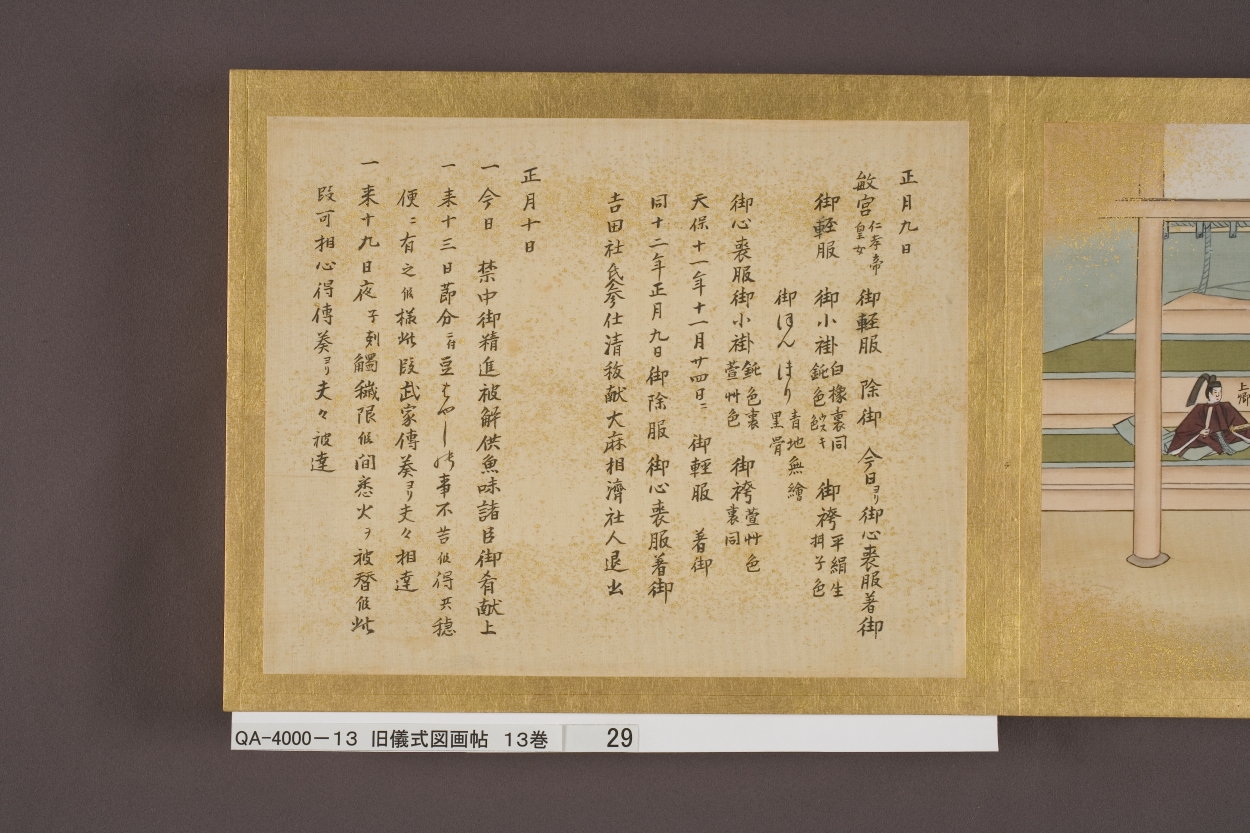 正月九日
敏宮 仁孝帝皇女 御軽服 除御 今日ヨリ御心喪服著御
御軽服 御小袿 白橡裏同鈍色 御袴 平絹生柑子色
御ほん ほり 青地無繪黒骨
御心喪服御小袿 鈍色裏萱艸色 御袴 萱艸色裏同
天保十一年十一月廿四日ニ 御軽服 著御
同十二年正月九日御除服 御心喪服著御
吉田社氏参仕清秡献大麻相濟社人退出
正月十日
一 今日 禁中御精進被解供魚味諸臣御肴献上
一 来十三日節分ニ付豆はやし 事不苦候得共穏
便ニ有之候様此段武家傳奏ヨリ夫々相達
一 来十九日夜子刻觸穢限候間悉火ヲ被替候此
段可相心得傳奏ヨリ夫々被達
上卿
QA-4000-13 旧儀式図画帖 13巻 29